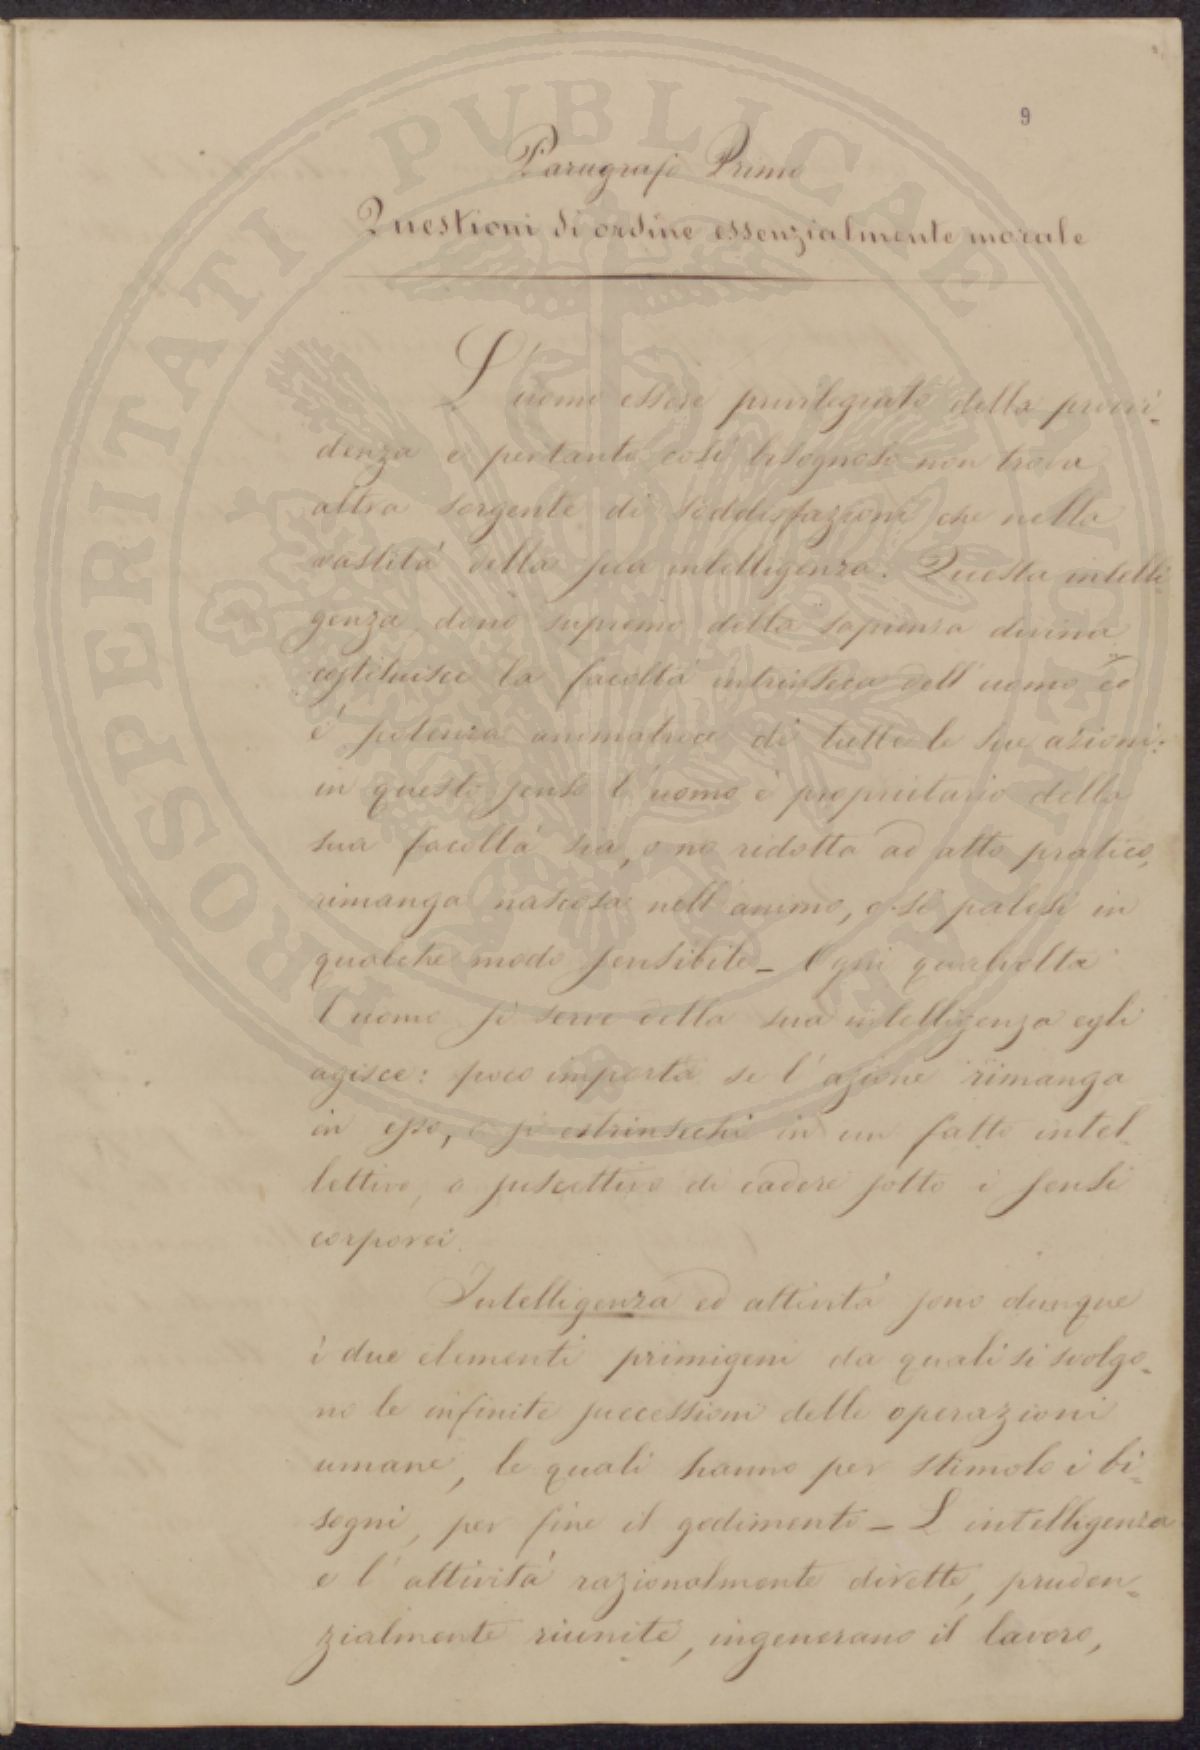 9
Paragrafo Primo
Questioni di ordine essenzialmente morale
L'uomo essere privilegiato della provvi-
denza e pertanto così bisognoso non trova
altra sorgente di soddisfazioni che nella
vastità della sua intelligenza. Questa intelli
genza dono supremo della sapienza divina
costituisce la facoltà intrinseca dell'uomo ed
è potenza animatrice di tutte le sue azioni:
in questo senso l'uomo è proprietario della
sua facoltà sia, o no ridotta ad atto pratico,
rimanga nascosa nell'animo, o si palesi in
qualche modo sensibile_ Ogni qualvolta
l'uomo si serve della sua intelligenza egli
agisce: poco importa se l'azione rimanga
in esso, o si estrinsechi in un fatto intel_
lettivo, o suscettivo di cadere sotto i sensi
corporei.
Intelligenza ed attività sono dunque
i due elementi primigeni da quali si svolgo_
no le infinite successioni delle operazioni
umane, le quali hanno per stimolo i bi_
sogni, per fine il godimento_ L'intelligenza
e l'attività razionalmente dirette, pruden_
zialmente riunite, ingenerano il lavoro,
PROSPERITATI PUBLICAE AUGENDAE